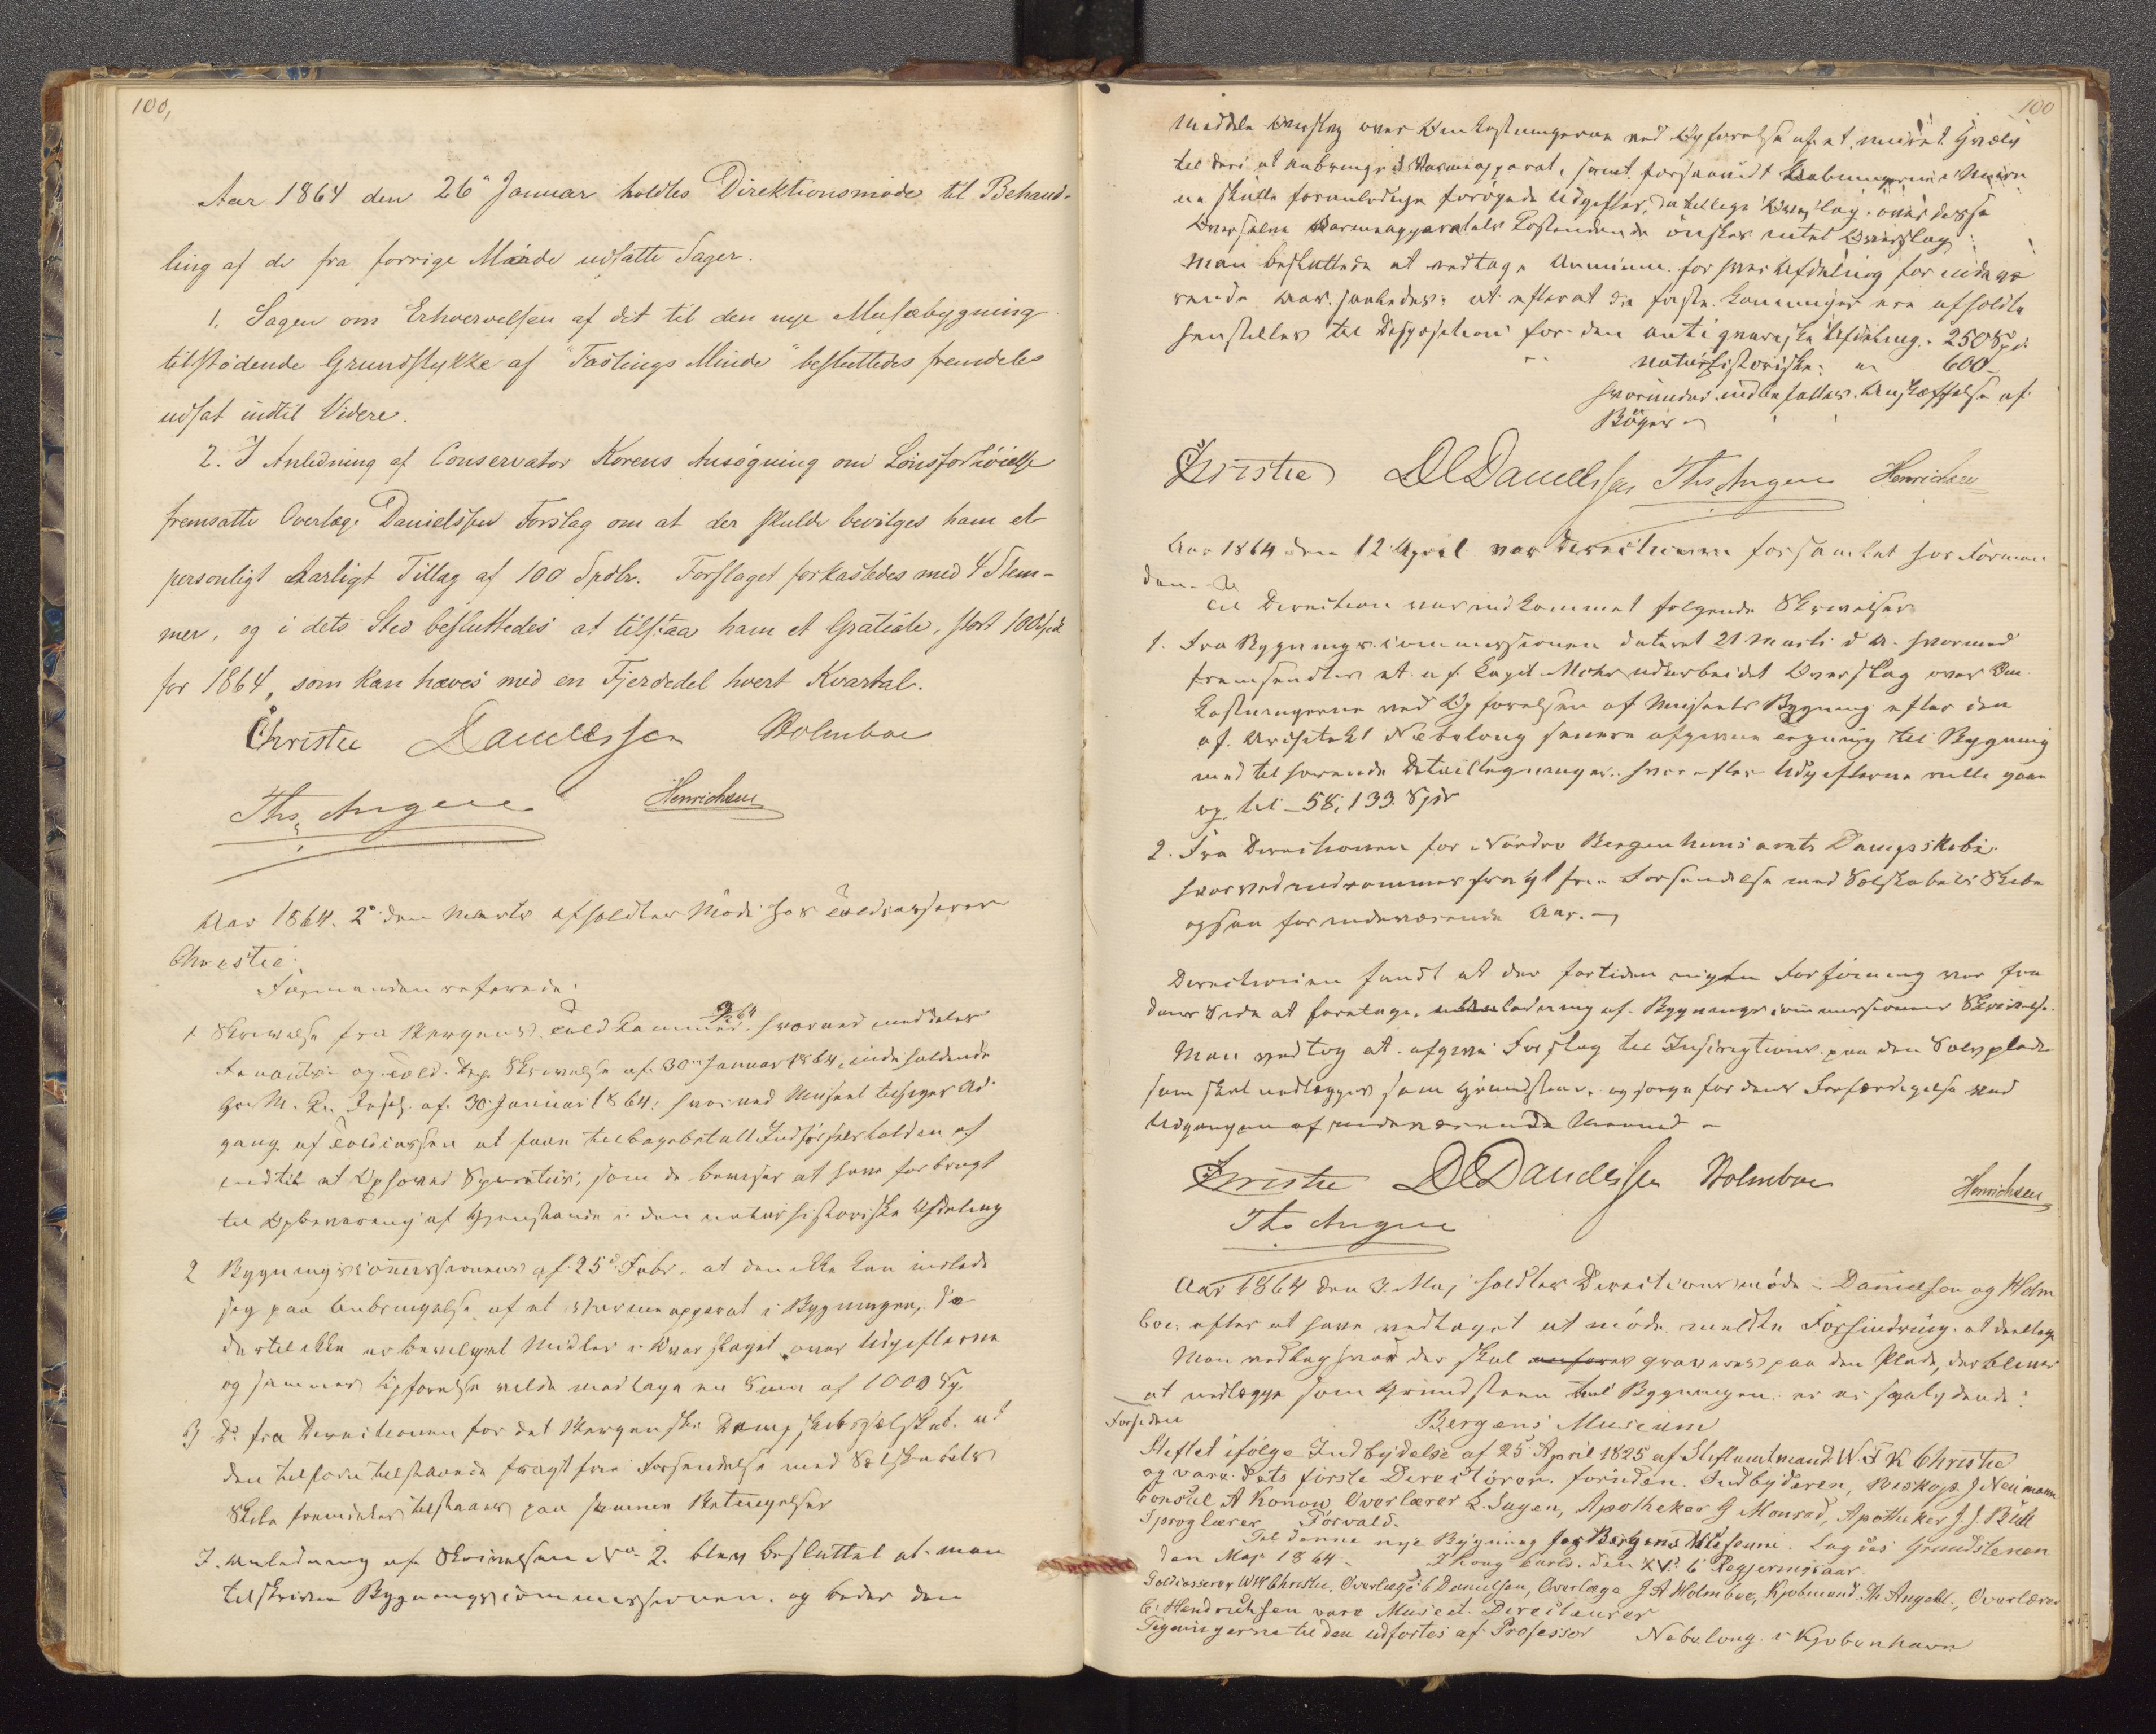 100,
Aar 1864 den 26' Januar holdtes Direktionsmøde til Behand-
ling af de fra forrige Møde udsatte Sager.
1. Sagen om Erhvervelsen af det til den nye Musæbygning
tilstødende Grundstykke af "Fastings Minde" besluttedes fremdeles
udsat indtil Videre.
2. I Anledning af Conservator Korens Ansøgning om Lønsforhøielse
fremsatte Overlæge Danielssen Forslag om at der skulde bevilges ham et
personligt Aarligt Tillæg af 100 Spdlr. Forslaget forkastedes med 4 Stem-
mer, og i dets Sted besluttedes at tilstaa ham et Gratiale, stort 100 Spd
for 1864, som kan hæves med en Fjerdedel hvert Kvartal.
Christie Danielssen Holmboe
Ths. Angell Henrichsen
Aar 1864. 2den Marts afholdtes Møde hos Toldcasserer
Christie.
Formanden refererede:
1. Skrivelse fra Bergens Toldkammer hvorved meddeles
Finants- og Told. Dep. Skrivelse af 30 Januar 1864, indeholdende
Resol. af 30 Januar 1864: hvorved Museet tilsiges Ad-
gang af Toldcassen at faae tilbagebetalt Indførselstolden af
indtil et Oxhoved Spiritus, som de beviser at have forbrugt
til Opbevaring af Gjenstande i den naturhistoriske Afdeling
2 Bygningscommissionens af 25 Febr. at den ikke kan indlade
sig paa Anbringelse af et Varmeapparat i Bygningen, da
dertil ikke er bevilget Midler i Overslaget over Udgifterne
og sammes Opførelse vilde medtage en Sum af 1000 Sp.
3 Do fra Directionen for det Bergenske Dampskibsselskab at
den tilforn tilstaaede fragtfrie Forsendelse med Selskabets
Skibe fremdeles tilstaaes paa samme Betingelser
I Anledning af Skrivelsen No 2. blev besluttet at man
tilskriver Bygningscommissionen og beder den
100
meddele Overslag over Omkostningerne ved Opførelse af et muret Hvælv
til deri at anbringe Varmeapparat, samt forsaavidt Anbringelsen i Murene
skulle foranledige forøgede Udgifter, da tillige Overslag over disse
Overselve Varmeapparatets Kostende ønskes intet Overslag
Man besluttede at vedtage Annuum for hver Afdeling for indevæ
rende Aar saaledes: at efterat de faste Lønninger ere afholdte
henstilles til Disposition for den antiqvariske Afdeling 250 Spd
naturhistoriske 600
hvorunder indbefattes Anskaffelse af
Bøger
Christie DC Danielssen Ths Angell Henrichsen
Aar 1864 den 12 April var Directionen forsamlet hos Forman
den.
Til Direction var indkommet følgende Skrivelser
1. Fra Bygningscommissionen dateret 21 Marts d A. hvormed
fremsendtes et af Capit. Mohr udarbeidet Overslag over Om
kostningerne ved Opførelsen af Museets Bygning efter den
af Architekt Nebelong senere afgivne Tegning til Bygning
med tilhørende Detailtegninger, hvorefter Udgifterne ville gaae
op til 58,133 Spd
2. Fra Directionen for Nordre Bergenhuus amts Dampskibe
hvorved indrømmes fragtfrie Forsendelse med Selskabets Skibe
ogsaa for indeværende Aar.
Directionen fandt at der for tiden ingen Forføining var fra
dens Side at foretage i Anledning af Bygningscommissionens Skrivelse.
Man vedtog at afgive Forslag til Inscription paa den Sølvplade
som skal nedlægges som Grundsteen, og sørge for dens Forfærdigelse ved
Udgangen af indeværende Maaned
Christie DC Danielssen Holmboe Henrichsen
Ths Angell
Aar 1864 den 3. Maj holdtes Directionsmøde. Danielsen og Holm
boe, efter at have vedtaget at møde meldte Forhindring at deeltage
Man vedtog hvad der skal graveres paa den Plade, der bliver
at nedlægge som Grundsteen til Bygningen er saalydende:
Forsiden
Bergens Museum
Stiftet ifølge Indbydelse af 25 April 1825 af Stiftamtmand W. F K Christie
og vare dets første Directører, foruden Indbyderen, Biskop J Neumann
Consul A Konow, Overlærer L. Sagen, Apotheker G Monrad, Apotheker J. J. Bull
Sproglærer Forvald.
Til denne nye Bygning for Bergens Museum. Lagdes Grundstenen
den Maj 1864. I Kong Carls den XV's 6 Regjeringsaar.
Toldcasserer WW Christie, Overlæge DC Danielsen, Overlæge J A Holmboe, Kjøbmand Th Angell, Overlærer
C. Hendrichsen vare Museets Directeurer
Tegningerne til den udførtes af Professor Nebelong i Kjøbenhavn